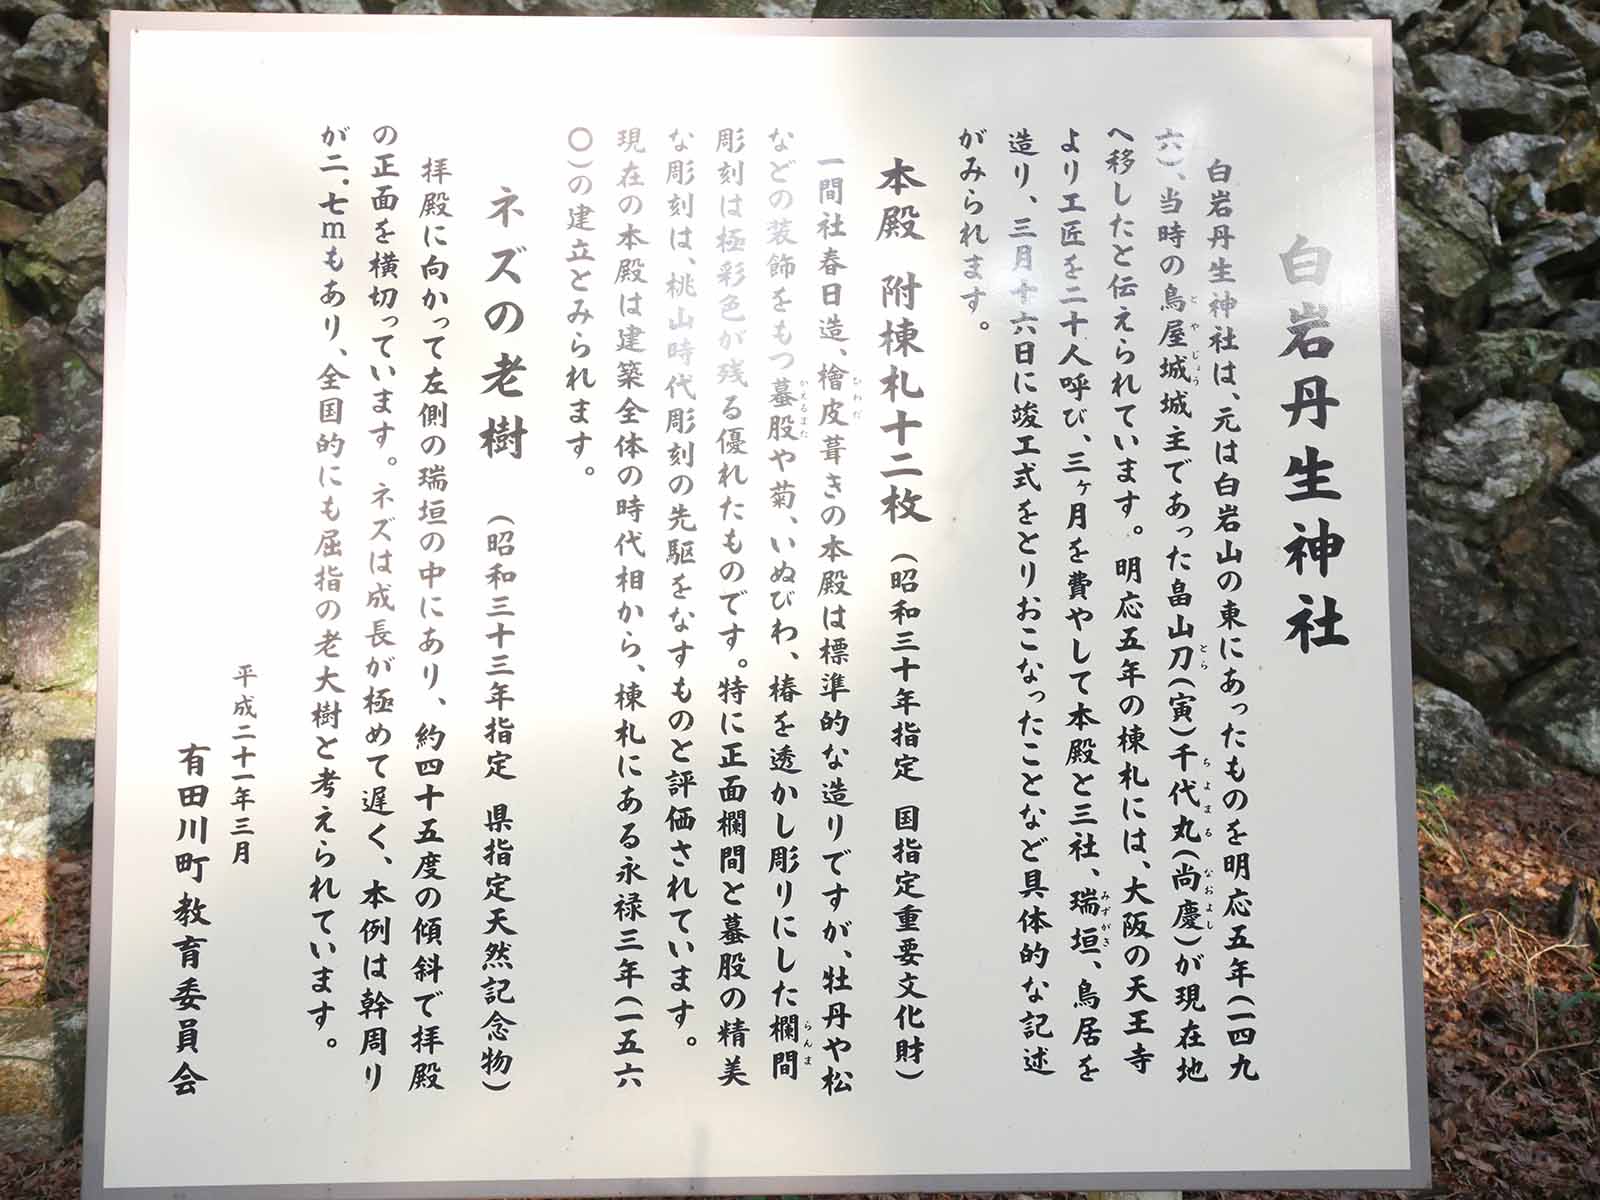 白岩丹生神社
白岩丹生神社は、元は白岩山の東にあったものを明応五年(一四九
六)、当時の鳥屋城城主であった畠山刀(寅)千代丸(尚慶)が現在地
へ移したと伝えられています。明応五年の棟札には、大阪の天王寺
より工匠を二十人呼び、三ヶ月を費やして本殿と三社、瑞垣、鳥居を
造り、三月十六日に竣工式をとりおこなったことなど具体的な記述
がみられます。
本殿 附棟札十二枚 (昭和三十年指定 国指定重要文化財)
一間社春日造、檜皮葺きの本殿は標準的な造りですが、牡丹や松
などの装飾をもつ蟇股や菊、いぬびわ、椿を透かし彫りにした欄間
彫刻は極彩色が残る優れたものです。特に正面欄間と蟇股の精美
な彫刻は、桃山時代彫刻の先駆をなすものと評価されています。
現在の本殿は建築全体の時代相から、棟札にある永禄三年(一五六
〇)の建立とみられます。
ネズの老樹 (昭和三十三年指定 県指定天然記念物)
拝殿に向かって左側の瑞垣の中にあり、約四十五度の傾斜で拝殿
の正面を横切っています。ネズは成長が極めて遅く、本例は幹周り
が二、七mもあり、全国的にも屈指の老大樹と考えられています。
平成二十一年三月
有田川町教育委員会
とやじょう
とら
ちよまる
なおよし
みずがき
ひわだ
かえるまた
らんま